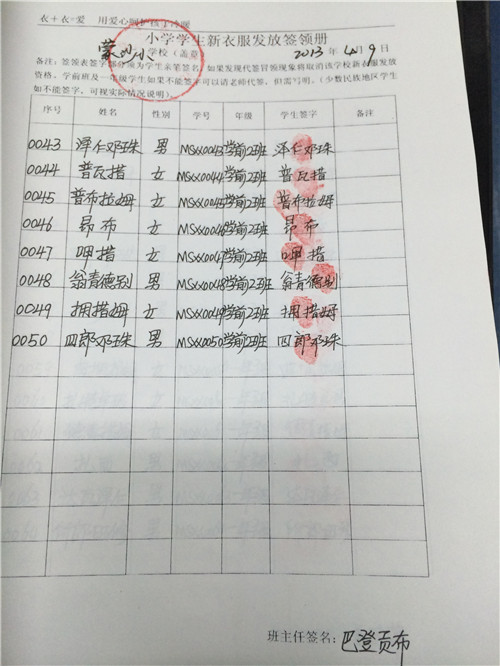 衣+衣=爱 用爱心呵护孩子冷暖
小学学生新衣服发放签领册
蒙沙小 学校（盖章） 2013年4月9日
备注：签领表签字部分须为学生亲笔签名，如果发现代签冒领现象将取消该学校新衣服发放
资格。学前班及一年级学生如果不能签字可以请老师代签，但需写明。（少数民族地区学生
如不能签字，可视实际情况说明）
序号 姓名 性别 学号 年级 学生签字 备注
0043 泽仁邓珠 男 MSXX0043 学前2班 泽仁邓珠
0044 普瓦措 女 MSXX0044 学前2班 普瓦措
0045 普布拉姆 女 MSXX0045 学前2班 普布拉姆
0046 昂布 女 MSXX0046 学前2班 昂布
0047 呷措 女 MSXX0047 学前2班 呷措
0048 翁青德别 男 MSXX0048 学前2班 翁青德别
0049 拥措姆 女 MSXX0049 学前2班 拥措姆
0050 四郎邓珠 男 MSXX0050 学前2班 四郎邓珠
班主任签名：巴登贡布